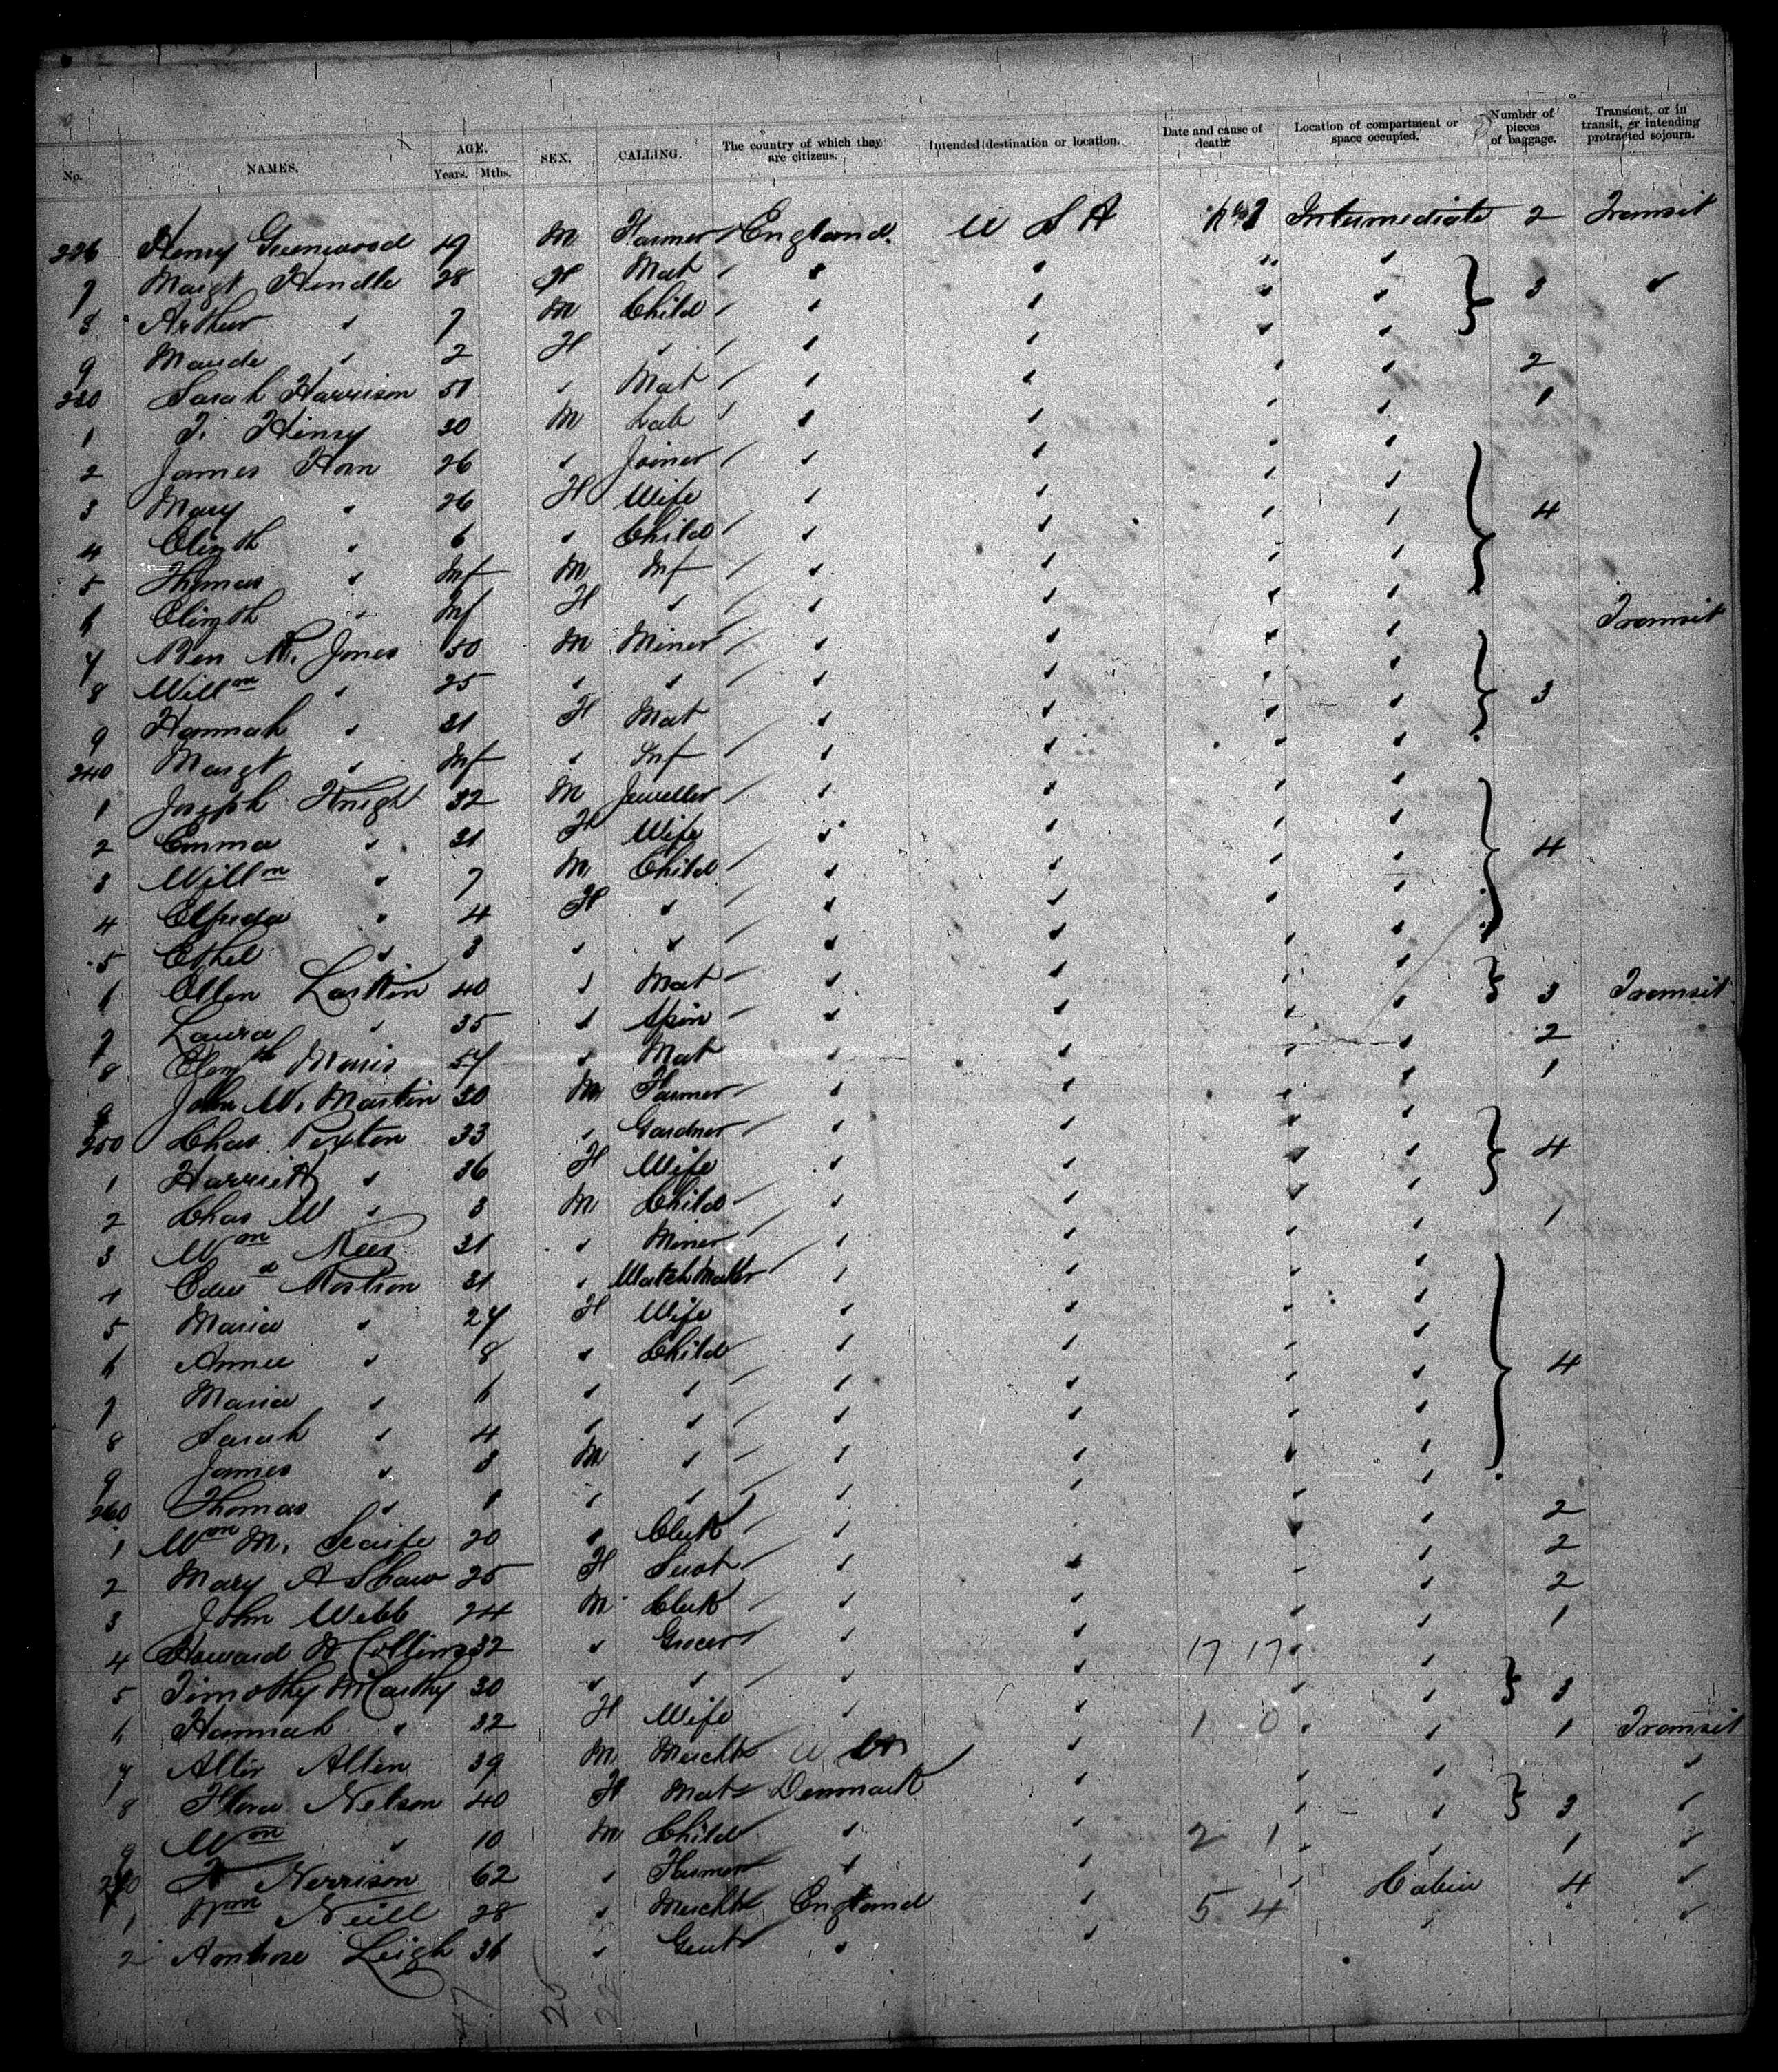 No. NAMES. AGE. Years. Mths. SEX. CALLING. The country of which they are citizens. Intended destination or location. Date and cause of death. Location of compartment or space occupied. Number of pieces of baggage. Transient, or in transit, or intending protracted sojourn.
226 Henry Greenwood 49 M Farmer England U S A Intermediate 2 Transit
7 Margt Hindle 28 F Mat
8 Arthur " 7 M Child " 3 "
9 Maude " 2 F "
230 Sarah Harrison 51 " Mat 2
1 T. Henry 30 M Lab 1
2 James Horn 26 " Joiner
3 Mary " 26 F Wife
4 Elizth " 6 " Child 4
5 Thomas " Inf M Inf
6 Elizth " Inf F "
7 Ben R. Jones 50 M Miner Transit
8 Willm " 25 " "
9 Hannah " 31 F Mat 3
240 Margt " Inf " Inf
1 Joseph Knight 32 M Jeweller
2 Emma " 31 F Wife
3 Willm " 7 M Child 4
4 Elfrida " 4 F "
5 Ethel " 3 " "
6 Ellen Larkin 40 " Mat
7 Laura " 35 " Spin 3 Transit
8 Elizth Morris 54 " Mat 2
9 John W. Martin 30 M Farmer 1
250 Chas Pexton 33 " Gardner
1 Harriett " 36 F Wife 4
2 Chas W " 3 M Child
3 Wm Rees 31 " Miner 1
4 Edwd Rostron 31 " Watch Maker
5 Maria " 27 F Wife
6 Annie " 8 " Child
7 Maria " 6 " " 4
8 Sarah " 4 " "
9 James " 3 M "
260 Thomas " 1 " "
1 Wm M. Scaife 20 " Clerk 2
2 Mary A Shaw 25 F Servt 2
3 John Webb 24 M Clerk 2
4 Howard W Collins 32 " Grocer 17 17 1
5 Timothy McCarthy 30 " "
6 Hannah " 32 F Wife 1 0 3
7 Allen 39 M Mercht 1 Transit
8 Flora Nelson 40 F Mat Denmark "
9 Wm " 10 M Child " 2 1 3 "
270 Nerrison 62 " Farmer " 1 "
1 Wm Neill 28 " Mercht England 5 4 Cabin 4 "
2 Ambrose Leigh 36 " Gent " "
47 25 22